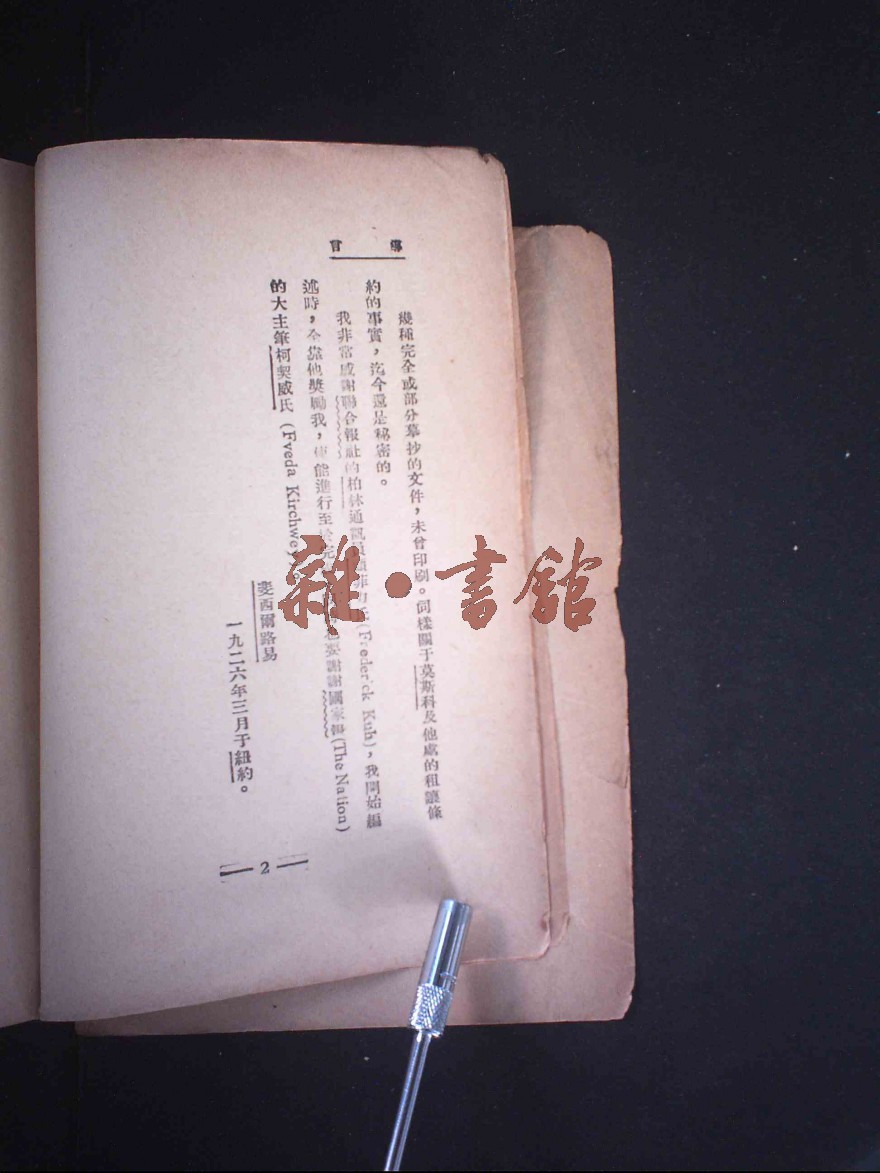 導言
幾種完全或部分摹抄的文件，未曾印刷。同樣關于莫斯科及他處的租讓條
約的事實，迄今還是秘密的。
我非常感謝聯合報社的柏林通訊員 (Frederick Kuh)，我開始編
述時，全靠他獎勵我，使能進行至於完 謝謝國家報(The Nation)
的大主筆柯契威氏 (Fveda Kirchwey)
斐西爾路易
一九二六年三月于紐約。
— 2 —
雜·書館